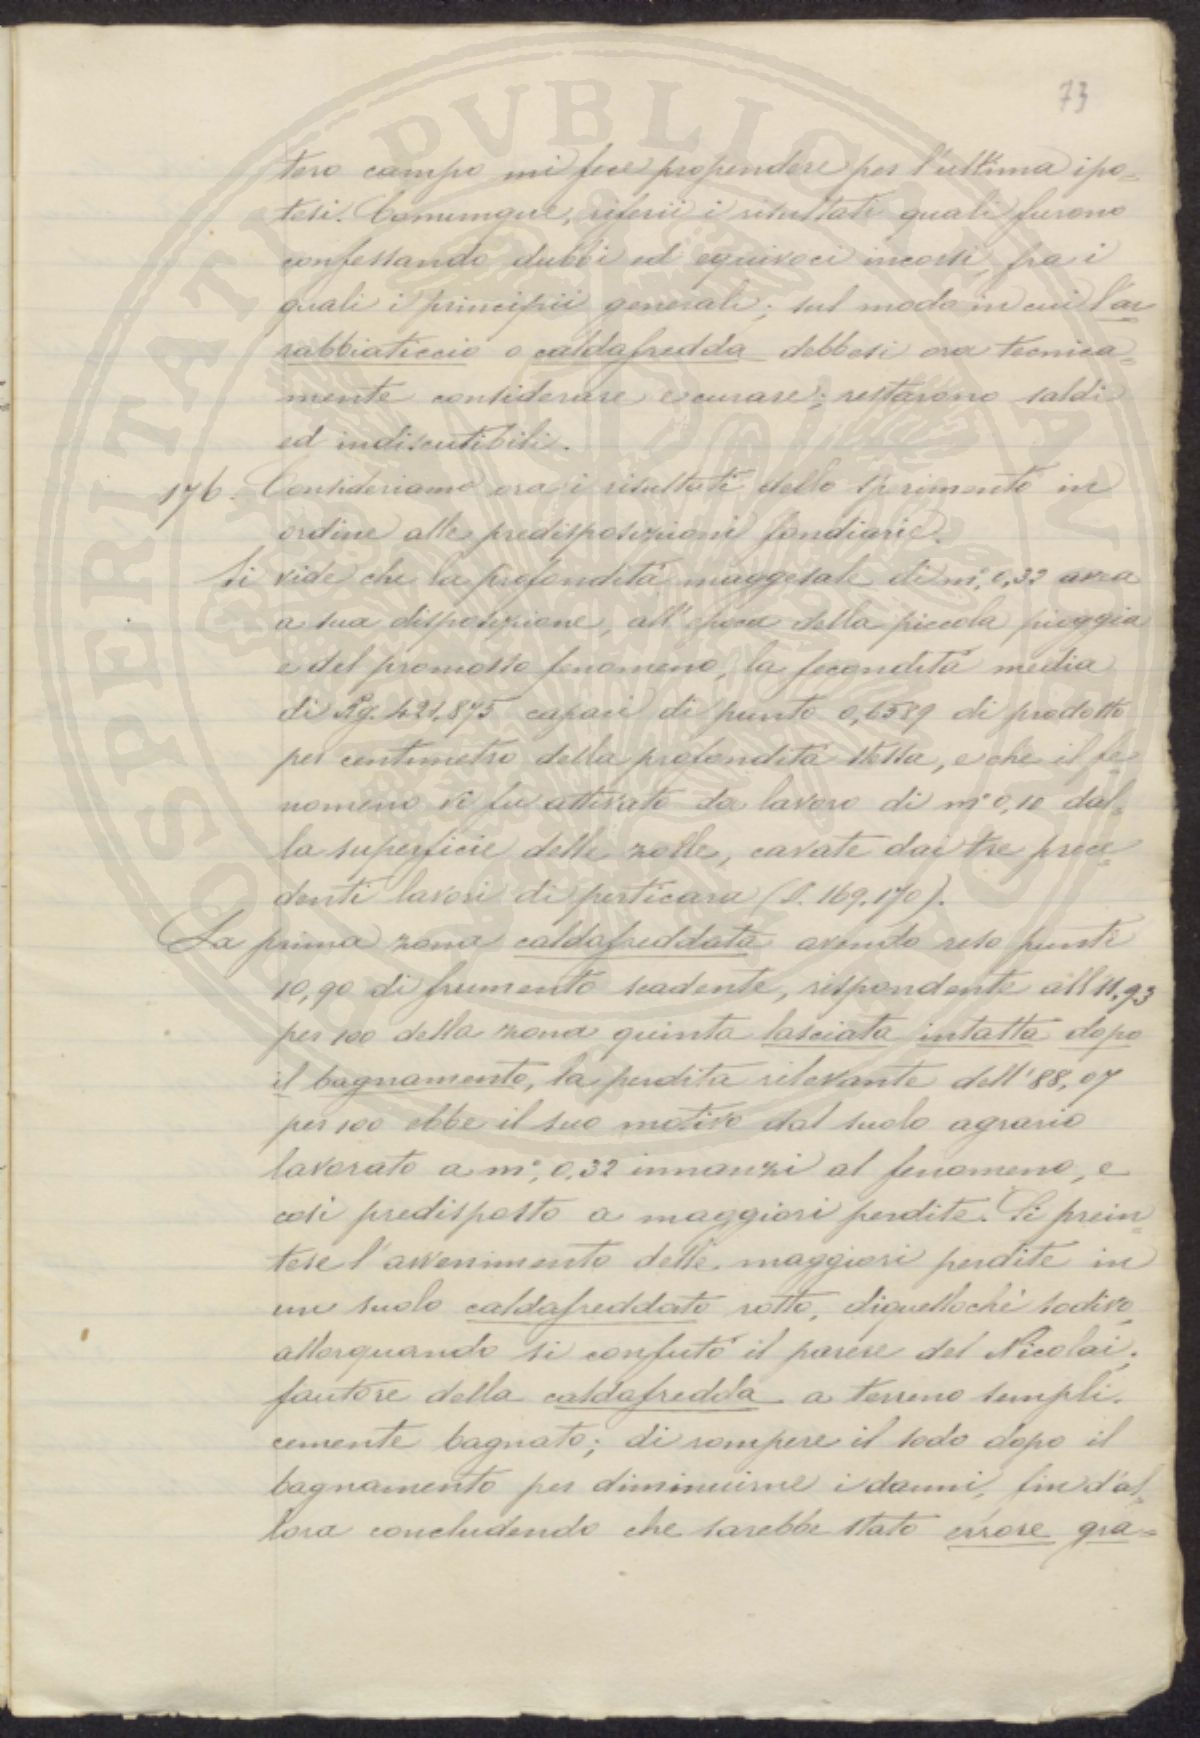 73
tero campo mi fece propendere per l'ultima ipo-
tesi. Comunque, riferii i risultati quali furono
confessando dubbi ed equivoci incorsi, fra i
quali i principii generali; sul modo in cui l'ar
rabbiaticcio o caldafredda debbesi ora tecnica-
mente considerare e curare; restarono saldi
ed indiscutibili.
176. Consideriamo ora i risultati dello sperimento in
ordine alle predisposizioni fondiarie.
Si vide che la profondità maggesale di m.° 0,32 avea
a sua disposizione, all'epoca della piccola pioggia
e del promosso fenomeno, la fecondità media
di Kg. 421.875 capaci di punto 0,6589 di prodotto
per centimetro della profondità stessa, e che il fe
nomeno vi fu attivato da lavoro di m.° 0,10 dal-
la superficie delle zolle, cavate dai tre prece
denti lavori di perticara (S. 169.170).
La prima zona caldafreddata avendo reso punti
10,90 di frumento scadente, rispondente all'11.93
per 100 della zona quinta lasciata intatta dopo
il bagnamento, la perdita rilevante dell'88,07
per 100 ebbe il suo motivo dal suolo agrario
lavorato a m.° 0,32 innanzi al fenomeno, e
così predisposto a maggiori perdite. Si prein-
tese l'avvenimento delle maggiori perdite in
un suolo caldafreddato rotto, diquelloché sodivo,
allorquando si confutò il parere del Nicolai,
fautore della caldafredda a terreno sempli-
cemente bagnato; di rompere il sodo dopo il
bagnamento per diminuirne i danni, fin d'al-
lora concludendo che sarebbe stato errore gra-